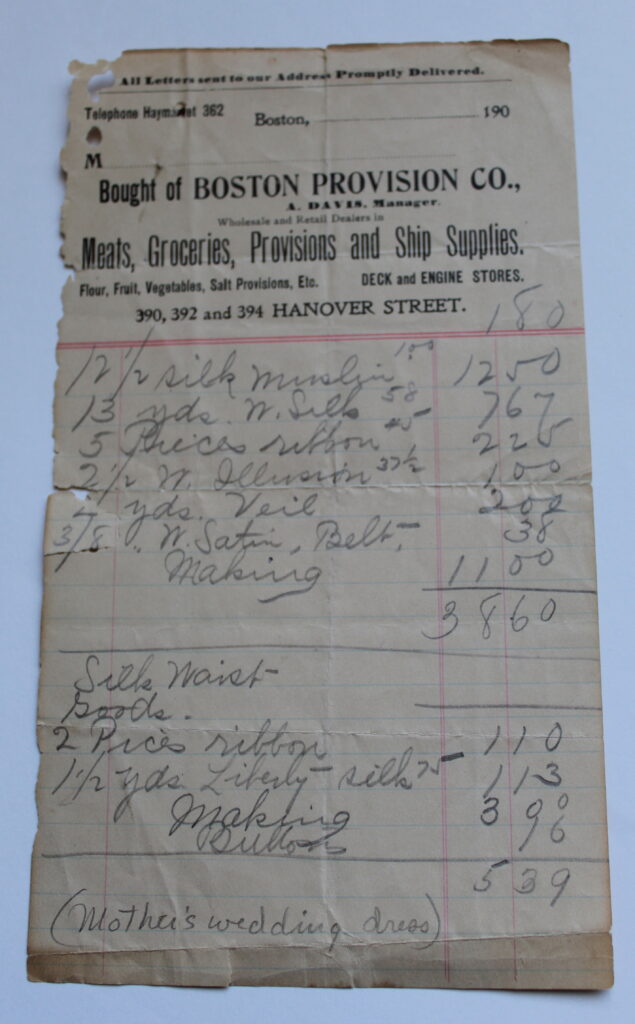 All Letters sent to our Address Promptly Delivered.
Telephone Haymarket 362
Boston, 190
M
Bought of BOSTON PROVISION CO.,
A. DAVIS, Manager.
Wholesale and Retail Dealers in
Meats, Groceries, Provisions and Ship Supplies.
Flour, Fruit, Vegetables, Salt Provisions, Etc. DECK and ENGINE STORES.
390, 392 and 394 HANOVER STREET.
180
12 1/2 silk muslin 1.00 1250
13 yds. W. Silk 58 767
5 Pieces ribbon 45 225
2 1/2 W. Illusion 37 1/2 100
yds. Veil 200
3/8 " W. Satin, Belt, 38
Making 1100
3860
Silk Waist
Goods.
2 Pices ribbon 110
1 1/2 yds Liberty silk 75 113
Making 3 0
Buttons 96
539
(Mother's wedding dress)